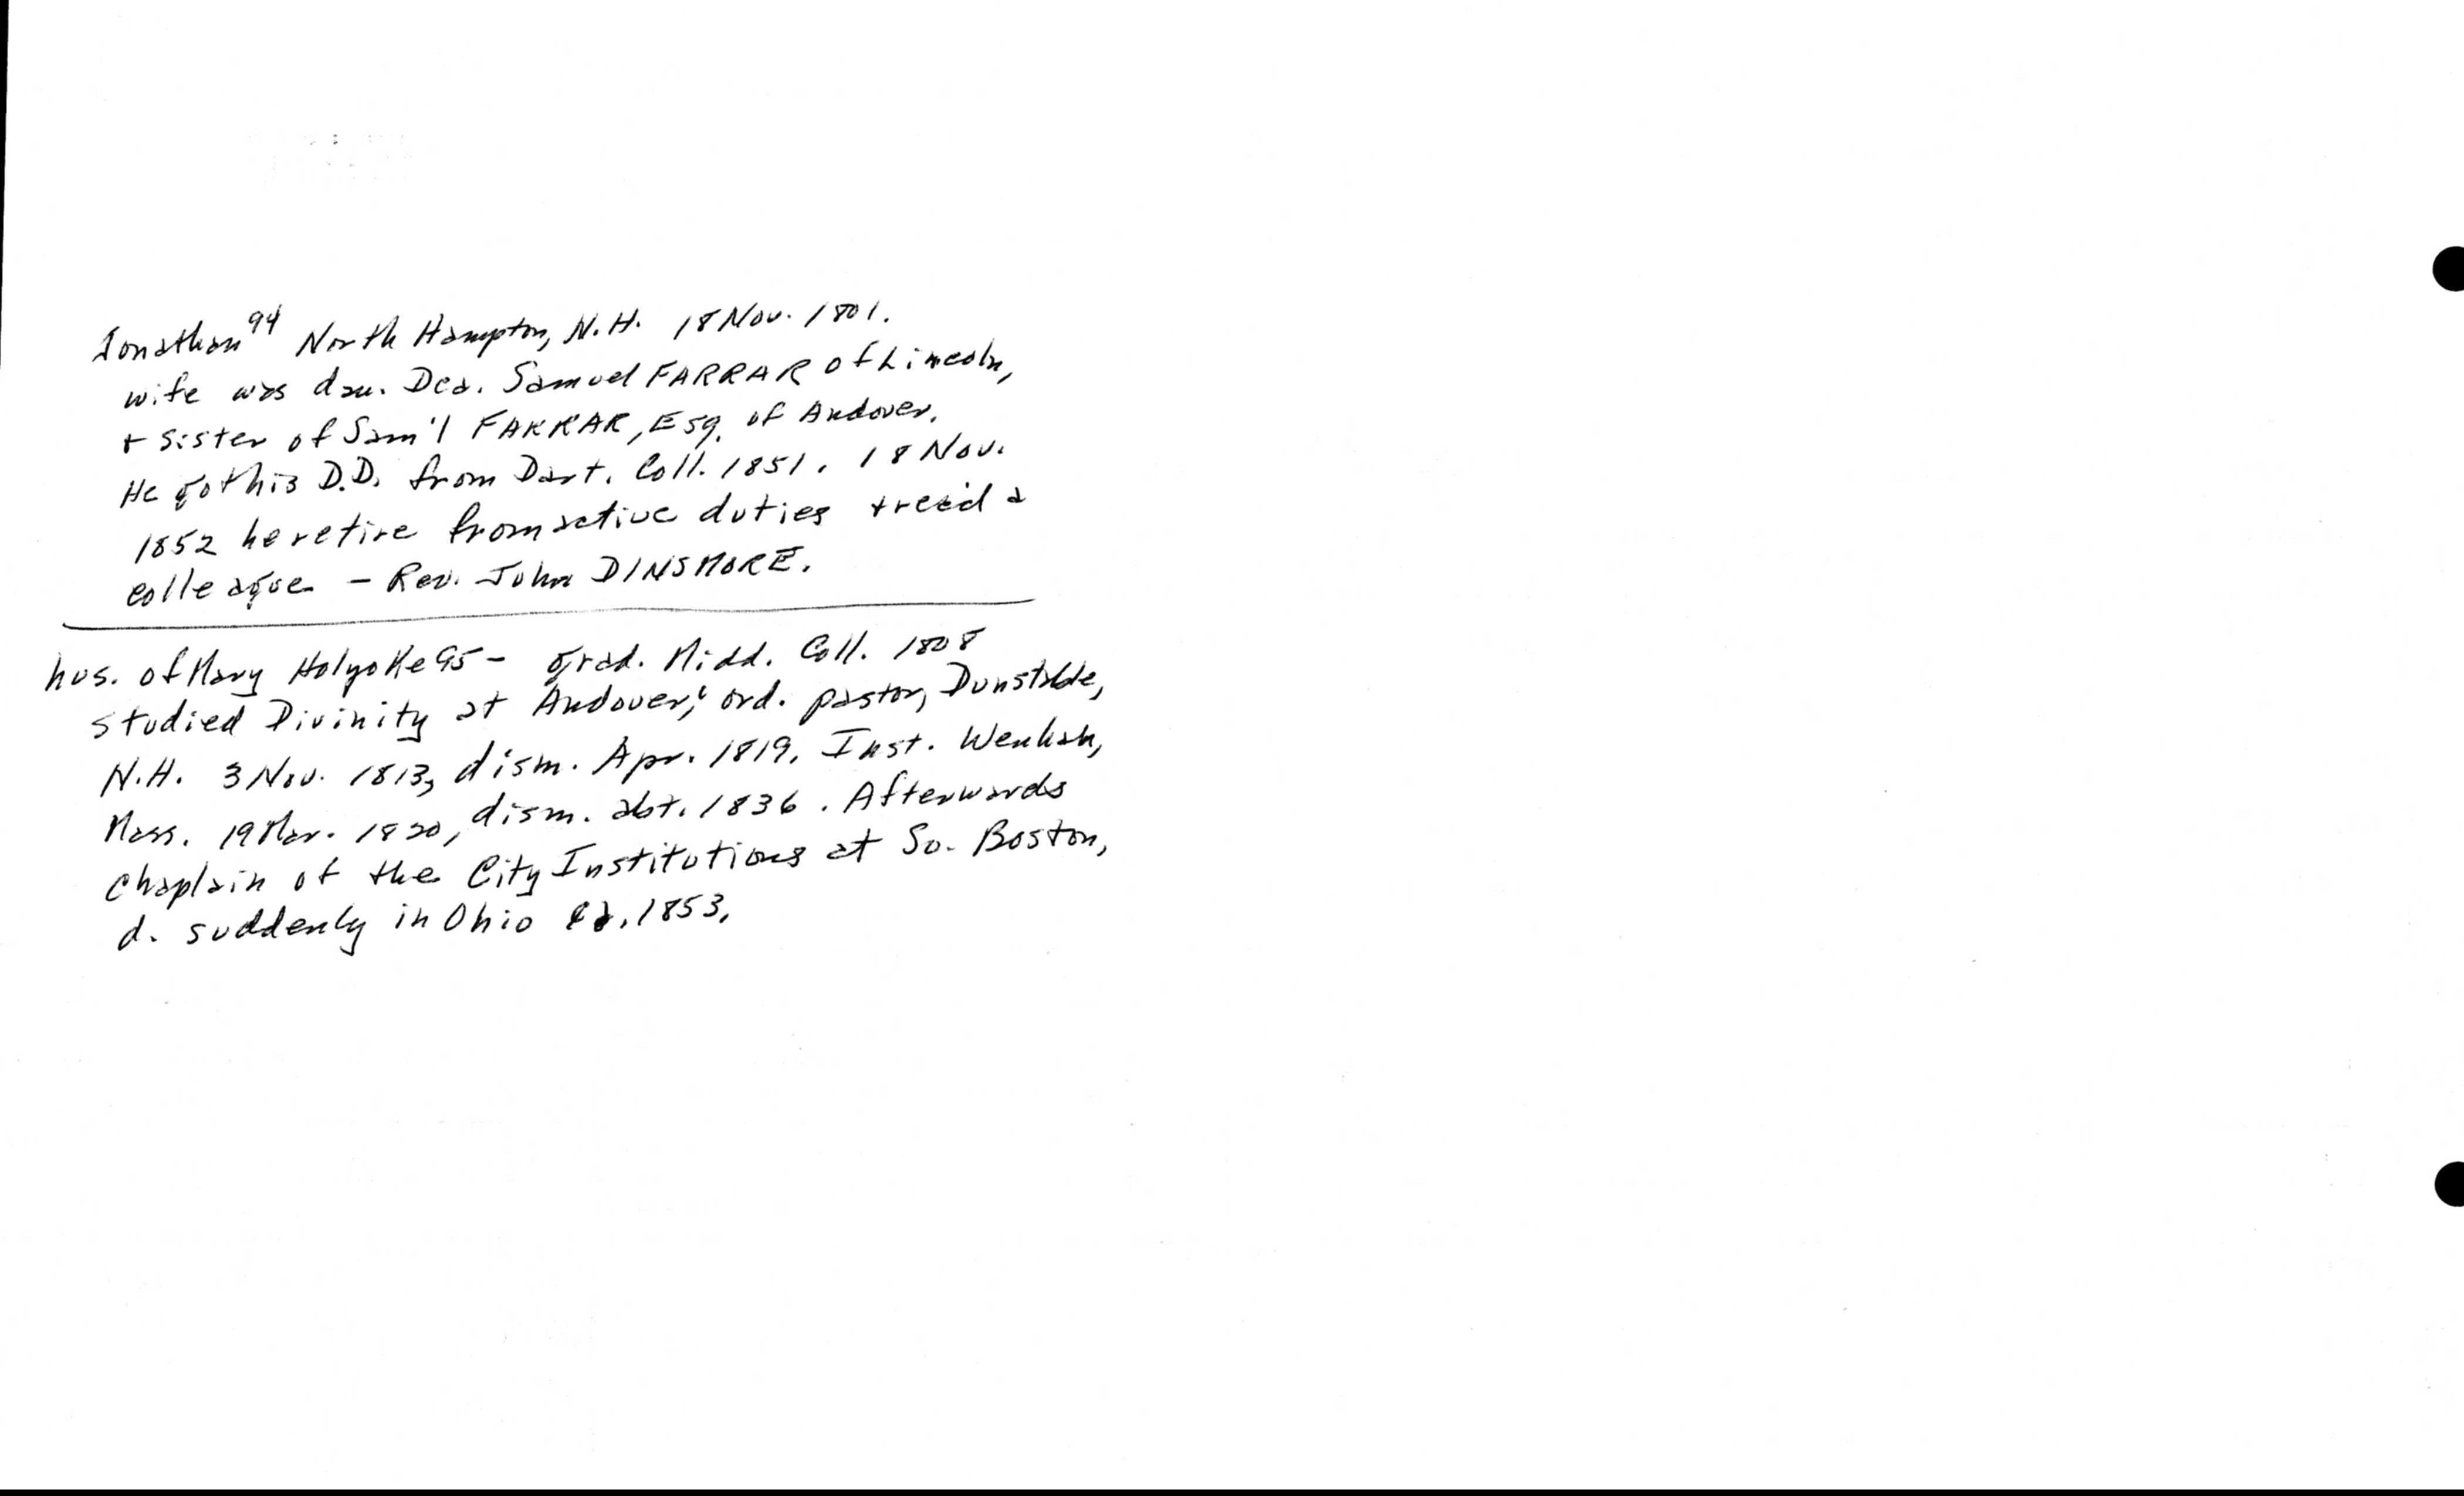 Jonathan 94 North Hampton, N.H. 18 Nov. 1801.
wife was dau. Dea. Samuel FARRAR of Lincoln,
+ sister of Sam'l FARRAR, Esq. of Andover.
He got his D.D. from Dart. Coll. 1851. 18 Nov.
1852 he retire from active duties + rec'd a
colleague - Rev. John DINSMORE.
hus. of Mary Holyoke 95 - grad. Midd. Coll. 1808
studied Divinity at Andover; ord. pastor, Dunstable,
N.H. 3 Nov. 1813, dism. Apr. 1819. Inst. Wenham,
Mass. 19 Mar. 1820, dism. abt. 1836. Afterwards
Chaplain of the City Institutions at So. Boston,
d. suddenly in Ohio ca. 1853.